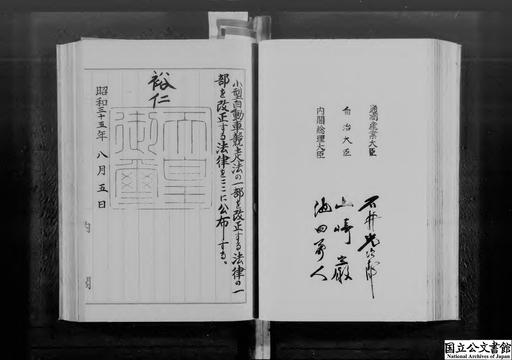 小型自動車競走法の一部を改正する法律の一
部を改正する法律をここに公布する。
裕仁
天皇
御璽
昭和三十五年 八月 五日
内閣総理大臣
自治大臣
通商産業大臣
池田勇人
山崎巌
石井光次郎
国立公文書館
National Archives of Japan